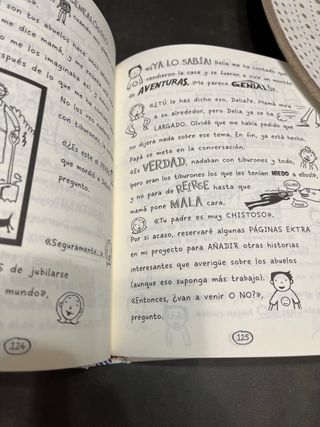 GENEALÓGI
cuando
n tus abuelos hace
me dice mamá, y me
o me los imaginaba así,
espués de lo que me ha
No los veo nada
con tiburones
«Es este el
que mordió a
pregunto.
«Seguramente...»
s de jubilarse
mundo»,
124
«¡YA LO SABÍA! Delia me ha contado que
vendieron la casa y se fueron a vivir un montón
de AVENTURAS. ¡Me parece GENIAL!».
«¿TÚ le has dicho eso, Delia?». Mamá mira
a su alrededor, pero Delia ya se ha
LARGADO. Olvidé que me había pedido que
no dijera nada sobre ese tema. En fin, ya está hecho.
Papá se mete en la conversación.
«Es VERDAD, nadaban con tiburones y todo,
¡pero eran los tiburones los que les tenían MIEDO a ellos!»,
y no para de REÍRSE hasta que
mamá pone MALA cara.
«Tu padre es muy CHISTOSO».
Por si acaso, reservaré algunas PÁGINAS EXTRA
en mi proyecto para AÑADIR otras historias
interesantes que averigüe sobre los abuelos
(aunque eso suponga más trabajo).
«Entonces, ¿van a venir O NO?»,
pregunto.
125